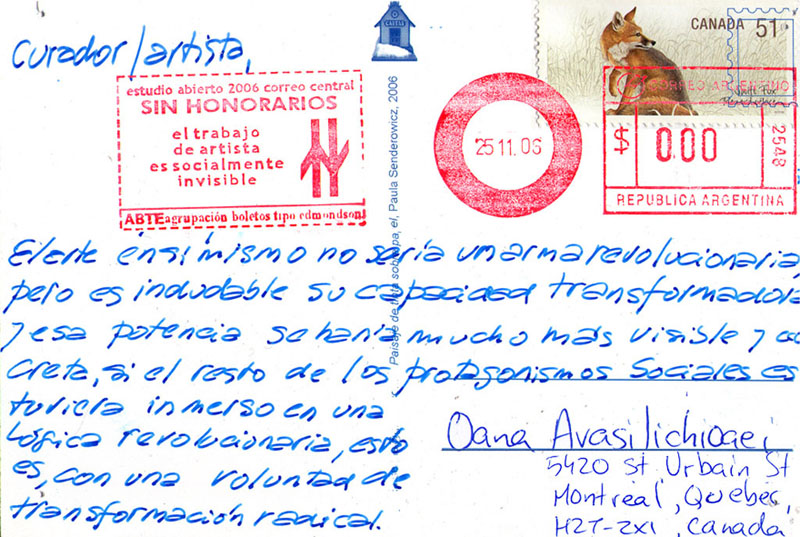 Curador/artista,
CANADA 51
estudio abierto 2006 correo central
SIN HONORARIOS
el trabajo
de artista
es socialmente
invisible
ABTE agrupación boletos tipo edmondson
25 11. 06
CORREO ARGENTINO
$ 0.00
2548
REPUBLICA ARGENTINA
Paisaje de el, Paula Senderowicz, 2006
El arte en sí mismo no sería un arma revolucionaria,
pero es indudable su capacidad transformadora
y esa potencia se haría mucho más visible y co
creta, si el resto de los protagonismos sociales es
tuviera inmerso en una
lógica revolucionaria, esto
es, con una voluntad de
transformación radical.
Oana Avasilichioaei
5420 St. Urbain St
Montreal, Quebec,
H2T-2X1, Canada